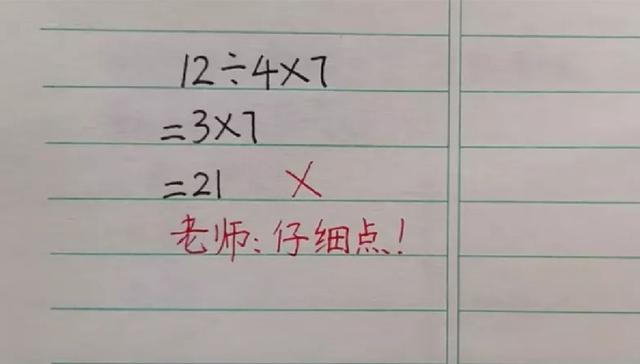 12÷4×7
=3×7
=21 ×
老师:仔细点!